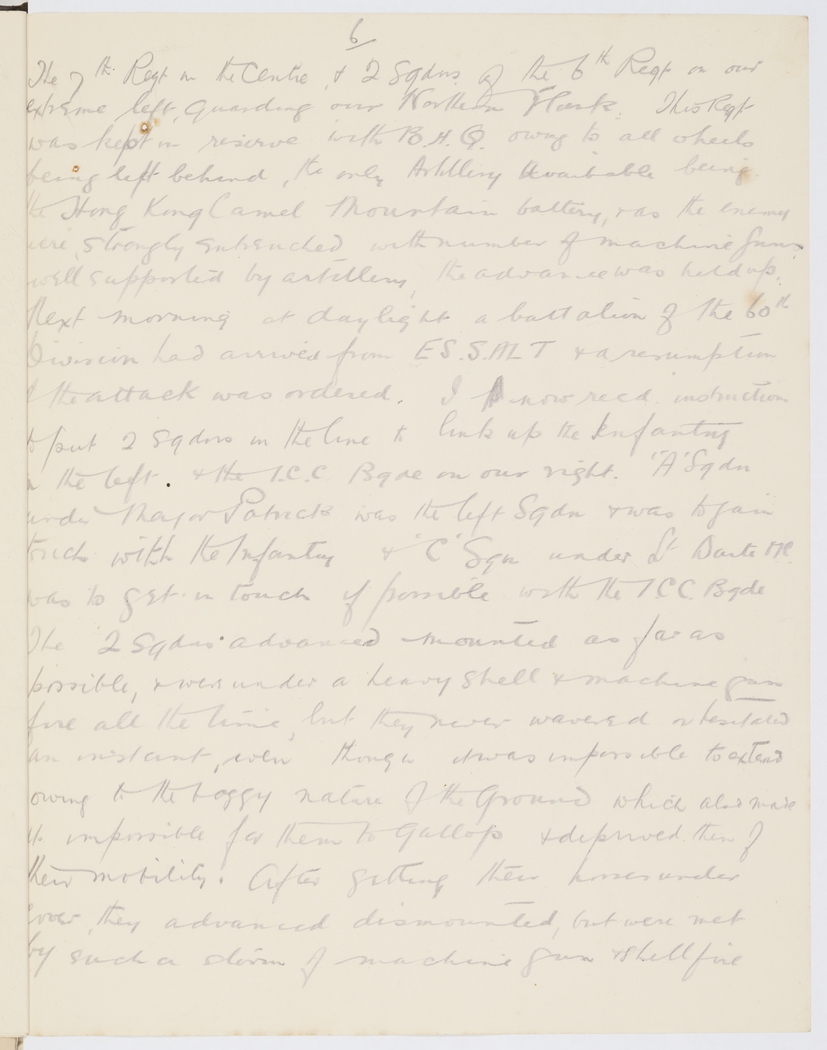 6
The 7th Regt in the Centre, & 2 Sqdns of the 6th Regt on our
extreme left, guarding our Northern Flank. This Regt
was kept in reserve with B.H.Q. owing to all wheels
being left behind, the only Artillery available being
the Hong Kong Camel Mountain battery, & as the enemy
were, strongly entrenched with number of machine guns
well supported by artillery, the advance was held up.
Next morning at daylight a battalion of the 60th
Division had arrived from ES.SALT & a resumption
of the attack was ordered. I now recd. instruction
to put 2 Sqdns in the line to link up the Infantry
on the left & the I.C.C Bgde on our right. "A" Sqdn
under Major Patrick was the left Sqdn & was to gain
touch with the Infantry & "C" Sqn under Lt
was to get in touch if possible with the I.C.C. Bgde
The 2 Sqdns advanced mounted as far as
possible, & were under a heavy shell & machine gun
fire all the time, but they never wavered or hesitated
an instant, even though it was impossible to extend
owing to the boggy nature of the Ground which also made
it impossible for them to Gallop & deprived them of
their mobility. After getting their horses under
cover, they advanced dismounted, but were met
by such a storm of machine gun & shell fire